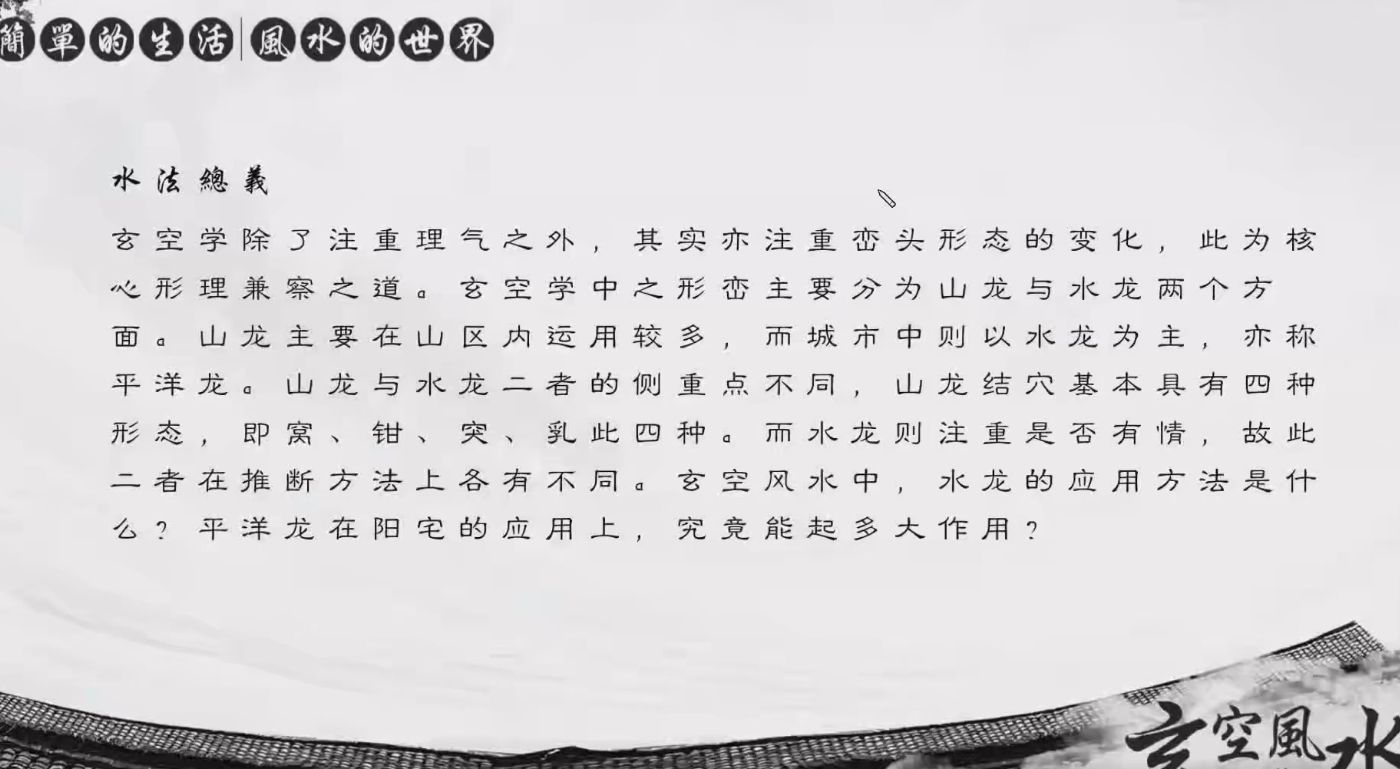 簡單的生活|風水的世界
水法總義
玄空学除了注重理气之外，其实亦注重峦头形态的变化，此为核
心形理兼察之道。玄空学中之形峦主要分为山龙与水龙两个方
面。山龙主要在山区内运用较多，而城市中则以水龙为主，亦称
平洋龙。山龙与水龙二者的侧重点不同，山龙结穴基本具有四种
形态，即窝、钳、突、乳此四种。而水龙则注重是否有情，故此
二者在推断方法上各有不同。玄空风水中，水龙的应用方法是什
么？平洋龙在阳宅的应用上，究竟能起多大作用？
玄空風水